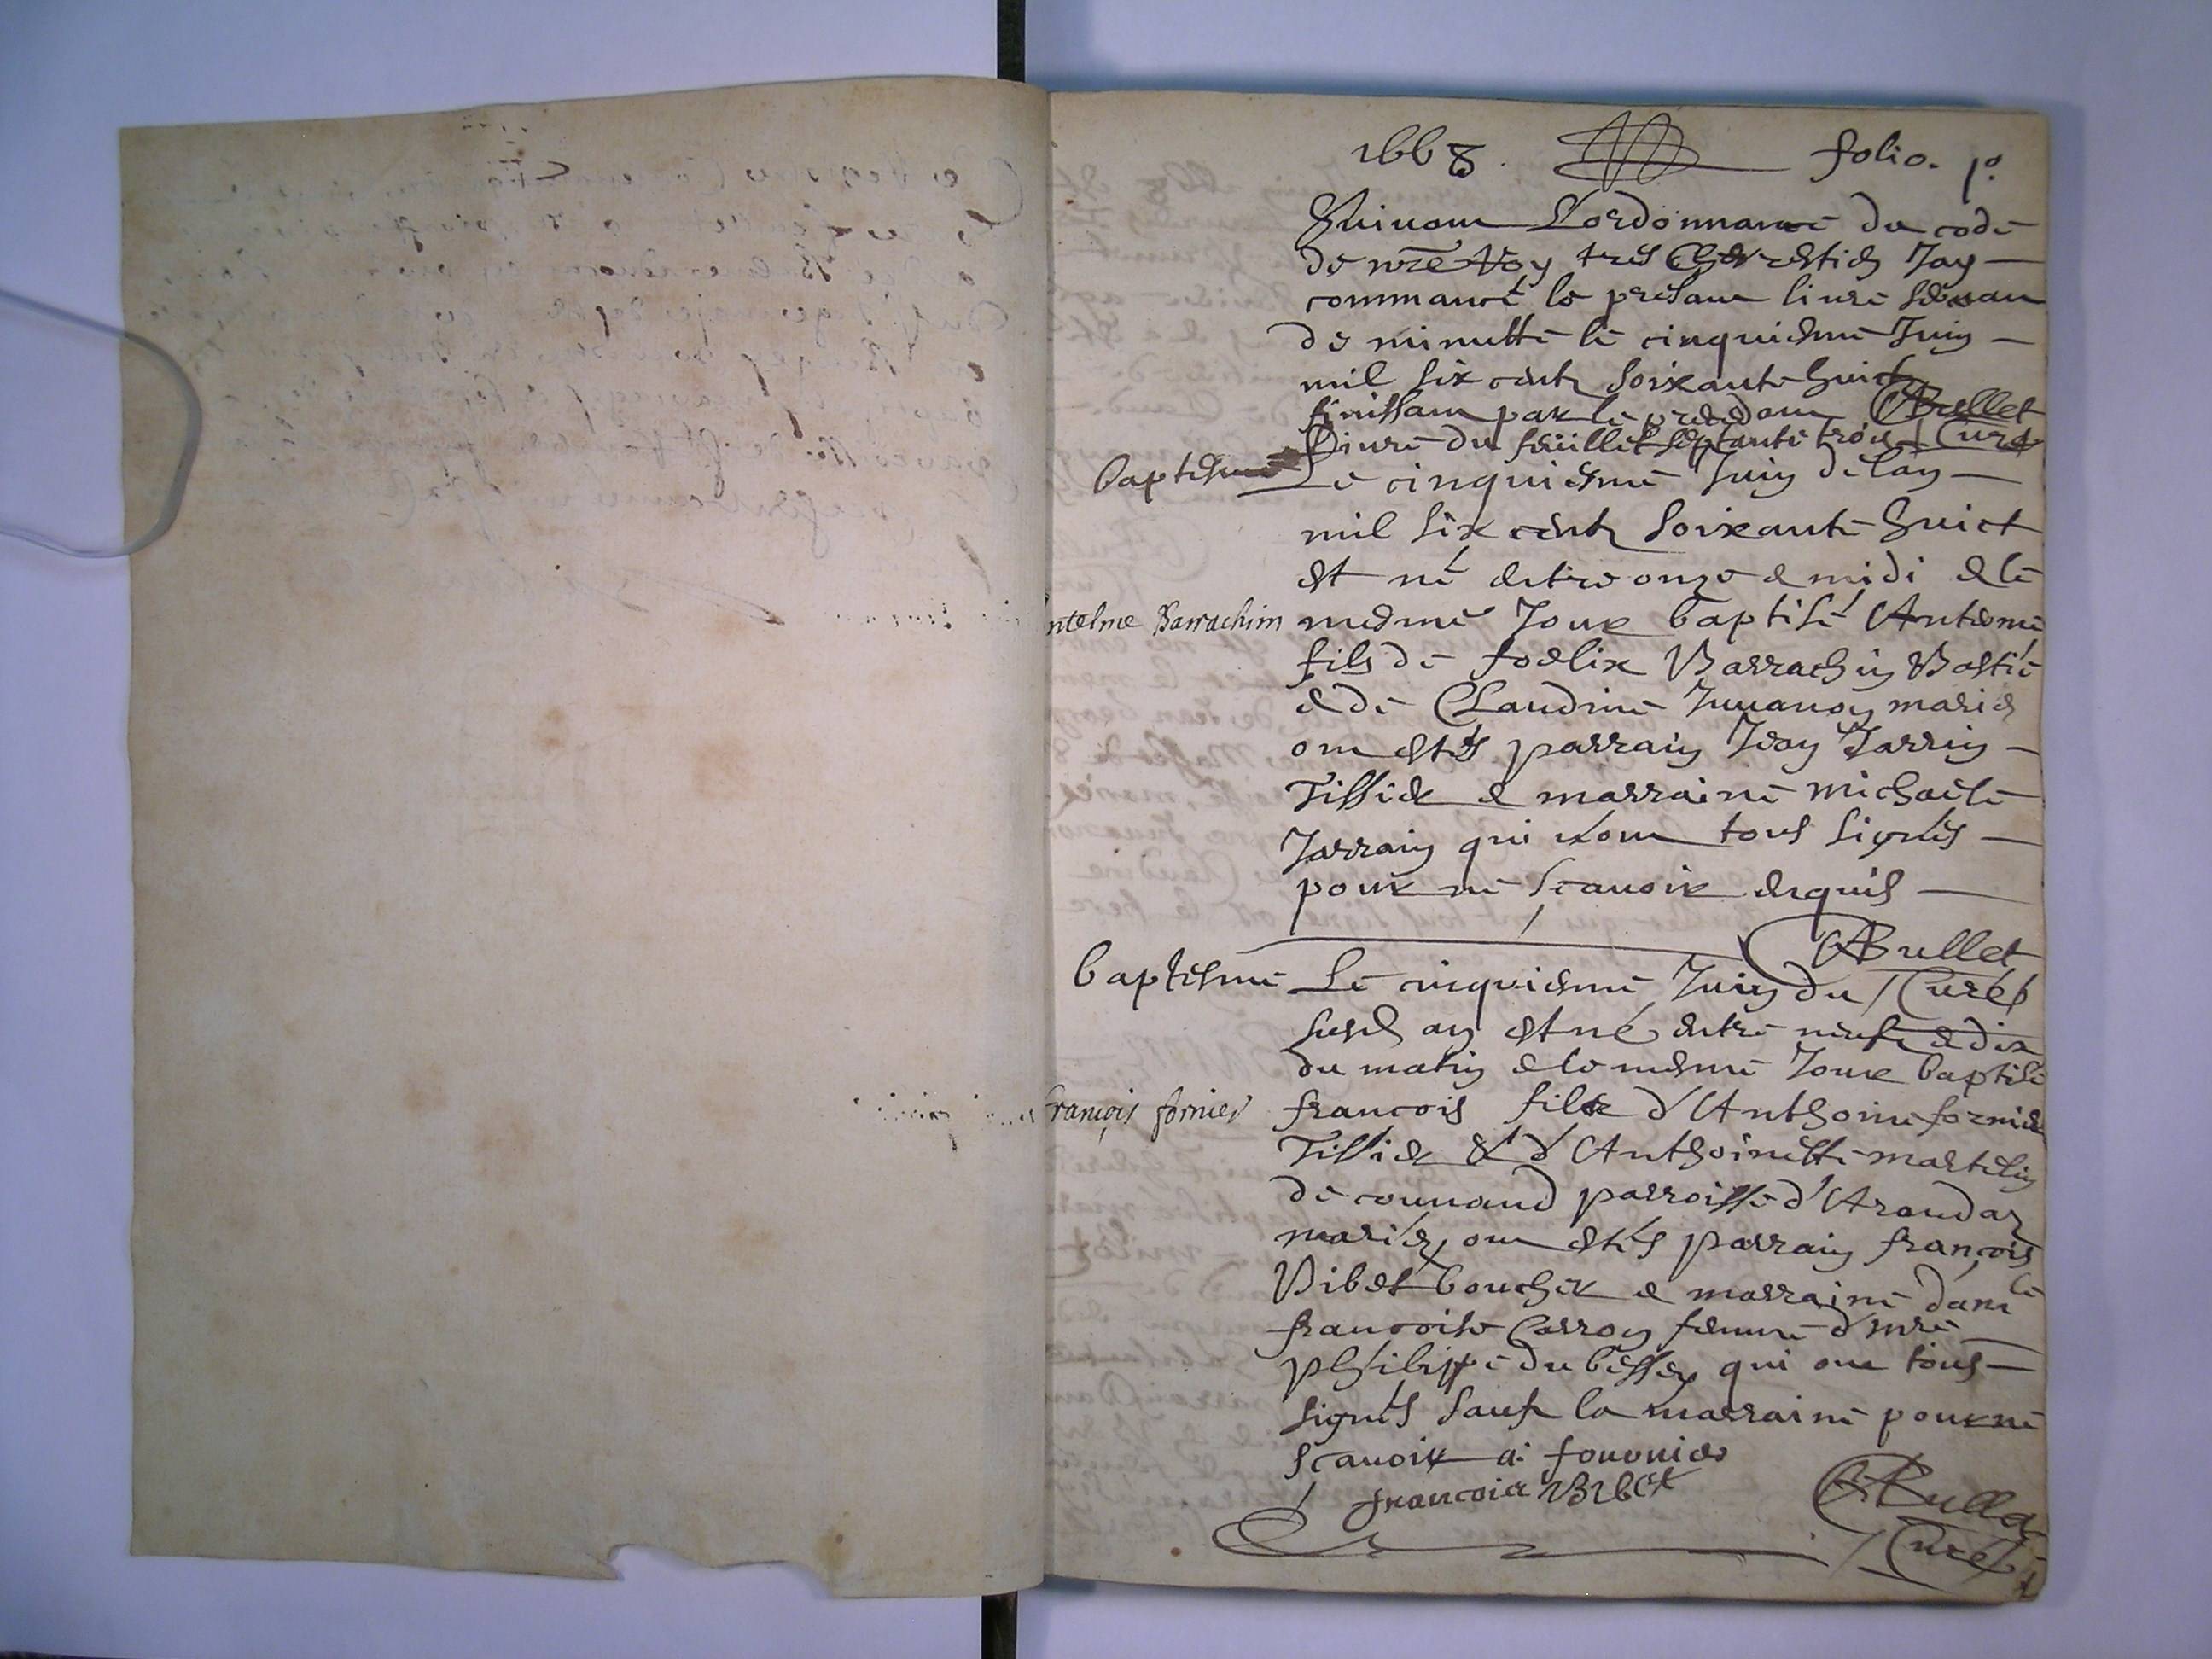 1668. folio. 1º.
Suivant L'ordonnance du code
de nre Roy tres Chrestien Jay
commancé le present livre servan
de minutte le cinquiesme Juin
mil six centz soixante huict
finissant par le precedant ABullet
Livre du feüillet septante trois Curé
baptesme Le cinquiesme Juin de lan
mil six centz soixante huict
est né entre onze & midi & le
ntelme Barrachim mesme Jour baptisé Anteme
fils de foelix Barrachin Bastié
& de Claudine Juvanon mariés
ont estés parrain Jean Jarrin
Tissier & marraine michaele
Jarrain qui n'ont tous signés
pour ne scavoir enquis
ABullet
baptesme Le cinquiesme Juin du Curé
susd an est né entre neuf & dix
du matin & le mesme Jour baptisé
françois fornier francois filz d'Anthoine fornier
Tissier & d'Anthoinette martelin
de counand parroisse d'Arandaz
mariez, ont estés parrain françois
Vibet boucher & marraine damle
francoise Carron femme d mre
philippe du bessey qui ont tous
signés sauf la marraine pour ne
scavoir a: fouvnier
francois Vibet
ABullet
Curé